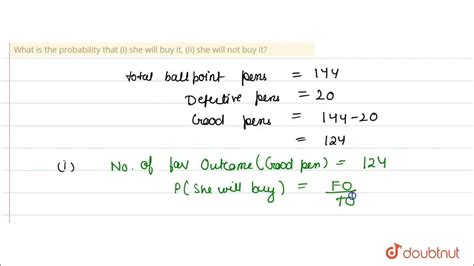 What is the probability that (i) she will buy it, (ii) she will not buy it?
total ballpoint pens = 144
Defective pens = 20
Good pens = 144-20
= 124
(i) No. of fav Outcome (Good pen) = 124
P(She will buy) = FO
TO
doubtnut